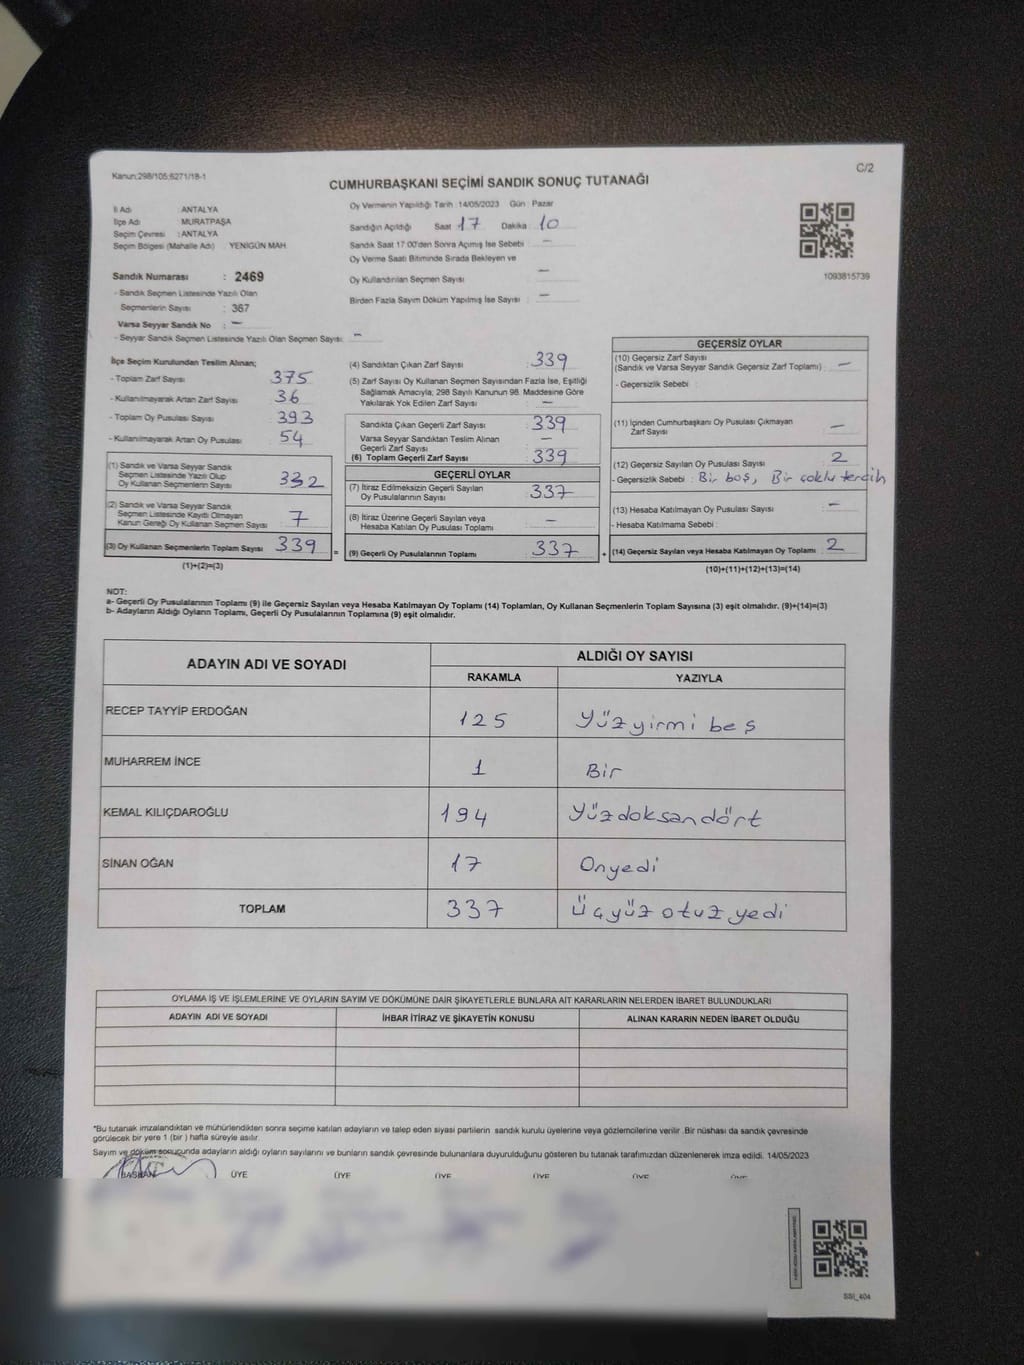 Kanun:298/105;6271/18-1
C/2
CUMHURBAŞKANI SEÇİMİ SANDIK SONUÇ TUTANAĞI
İl Adı : ANTALYA
İlçe Adı : MURATPAŞA
Seçim Çevresi : ANTALYA
Seçim Bölgesi (Mahalle Adı) : YENİGÜN MAH.
Sandık Numarası : 2469
- Sandık Seçmen Listesinde Yazılı Olan
Seçmenlerin Sayısı : 367
Varsa Seyyar Sandık No : —
- Seyyar Sandık Seçmen Listesinde Yazılı Olan Seçmen Sayısı: —
Oy Vermenin Yapıldığı Tarih :14/05/2023 Gün : Pazar
Sandığın Açıldığı Saat 17 Dakika 10
Sandık Saat 17:00'den Sonra Açılmış İse Sebebi : —
Oy Verme Saati Bitiminde Sırada Bekleyen ve
Oy Kullandırılan Seçmen Sayısı : —
Birden Fazla Sayım Döküm Yapılmış İse Sayısı : —
1093815739
İlçe Seçim Kurulundan Teslim Alınan;
- Toplam Zarf Sayısı : 375
- Kullanılmayarak Artan Zarf Sayısı : 36
- Toplam Oy Pusulası Sayısı : 393
- Kullanılmayarak Artan Oy Pusulası : 54
(1) Sandık ve Varsa Seyyar Sandık
Seçmen Listesinde Yazılı Olup
Oy Kullanan Seçmenlerin Sayısı : 332
(2) Sandık ve Varsa Seyyar Sandık
Seçmen Listesinde Kayıtlı Olmayan
Kanun Gereği Oy Kullanan Seçmen Sayısı : 7
(3) Oy Kullanan Seçmenlerin Toplam Sayısı : 339 =
(1)+(2)=(3)
(4) Sandıktan Çıkan Zarf Sayısı : 339
(5) Zarf Sayısı Oy Kullanan Seçmen Sayısından Fazla İse, Eşitliği
Sağlamak Amacıyla; 298 Sayılı Kanunun 98. Maddesine Göre
Yakılarak Yok Edilen Zarf Sayısı : —
Sandıkta Çıkan Geçerli Zarf Sayısı : 339
Varsa Seyyar Sandıktan Teslim Alınan
Geçerli Zarf Sayısı : —
(6) Toplam Geçerli Zarf Sayısı : 339
GEÇERLİ OYLAR
(7) İtiraz Edilmeksizin Geçerli Sayılan
Oy Pusulalarının Sayısı : 337
(8) İtiraz Üzerine Geçerli Sayılan veya
Hesaba Katılan Oy Pusulası Toplamı : —
(9) Geçerli Oy Pusulalarının Toplamı : 337 +
GEÇERSİZ OYLAR
(10) Geçersiz Zarf Sayısı
(Sandık ve Varsa Seyyar Sandık Geçersiz Zarf Toplamı) : —
- Geçersizlik Sebebi :
(11) İçinden Cumhurbaşkanı Oy Pusulası Çıkmayan
Zarf Sayısı : —
(12) Geçersiz Sayılan Oy Pusulası Sayısı : 2
- Geçersizlik Sebebi : Bir boş, Bir çoklu tercih
(13) Hesaba Katılmayan Oy Pusulası Sayısı : —
- Hesaba Katılmama Sebebi :
(14) Geçersiz Sayılan veya Hesaba Katılmayan Oy Toplamı : 2
(10)+(11)+(12)+(13)=(14)
NOT:
a- Geçerli Oy Pusulalarının Toplamı (9) ile Geçersiz Sayılan veya Hesaba Katılmayan Oy Toplamı (14) Toplamları, Oy Kullanan Seçmenlerin Toplam Sayısına (3) eşit olmalıdır. (9)+(14)=(3)
b- Adayların Aldığı Oyların Toplamı, Geçerli Oy Pusulalarının Toplamına (9) eşit olmalıdır.
ADAYIN ADI VE SOYADI ALDIĞI OY SAYISI
RAKAMLA YAZIYLA
RECEP TAYYİP ERDOĞAN 125 Yüzyirmi beş
MUHARREM İNCE 1 Bir
KEMAL KILIÇDAROĞLU 194 Yüzdoksandört
SİNAN OĞAN 17 Onyedi
TOPLAM 337 Üçyüz otuz yedi
OYLAMA İŞ VE İŞLEMLERİNE VE OYLARIN SAYIM VE DÖKÜMÜNE DAİR ŞİKAYETLERLE BUNLARA AİT KARARLARIN NELERDEN İBARET BULUNDUKLARI
ADAYIN ADI VE SOYADI İHBAR İTİRAZ VE ŞİKAYETİN KONUSU ALINAN KARARIN NEDEN İBARET OLDUĞU
*Bu tutanak imzalandıktan ve mühürlendikten sonra seçime katılan adayların ve talep eden siyasi partilerin sandık kurulu üyelerine veya gözlemcilerine verilir. Bir nüshası da sandık çevresinde
görülecek bir yere 1 (bir ) hafta süreyle asılır.
Sayım ve döküm sonucunda adayların aldığı oyların sayılarını ve bunların sandık çevresinde bulunanlara duyurulduğunu gösteren bu tutanak tarafımızdan düzenlenerek imza edildi. 14/05/2023
BAŞKAN ÜYE ÜYE ÜYE ÜYE ÜYE ÜYE
SSI_404